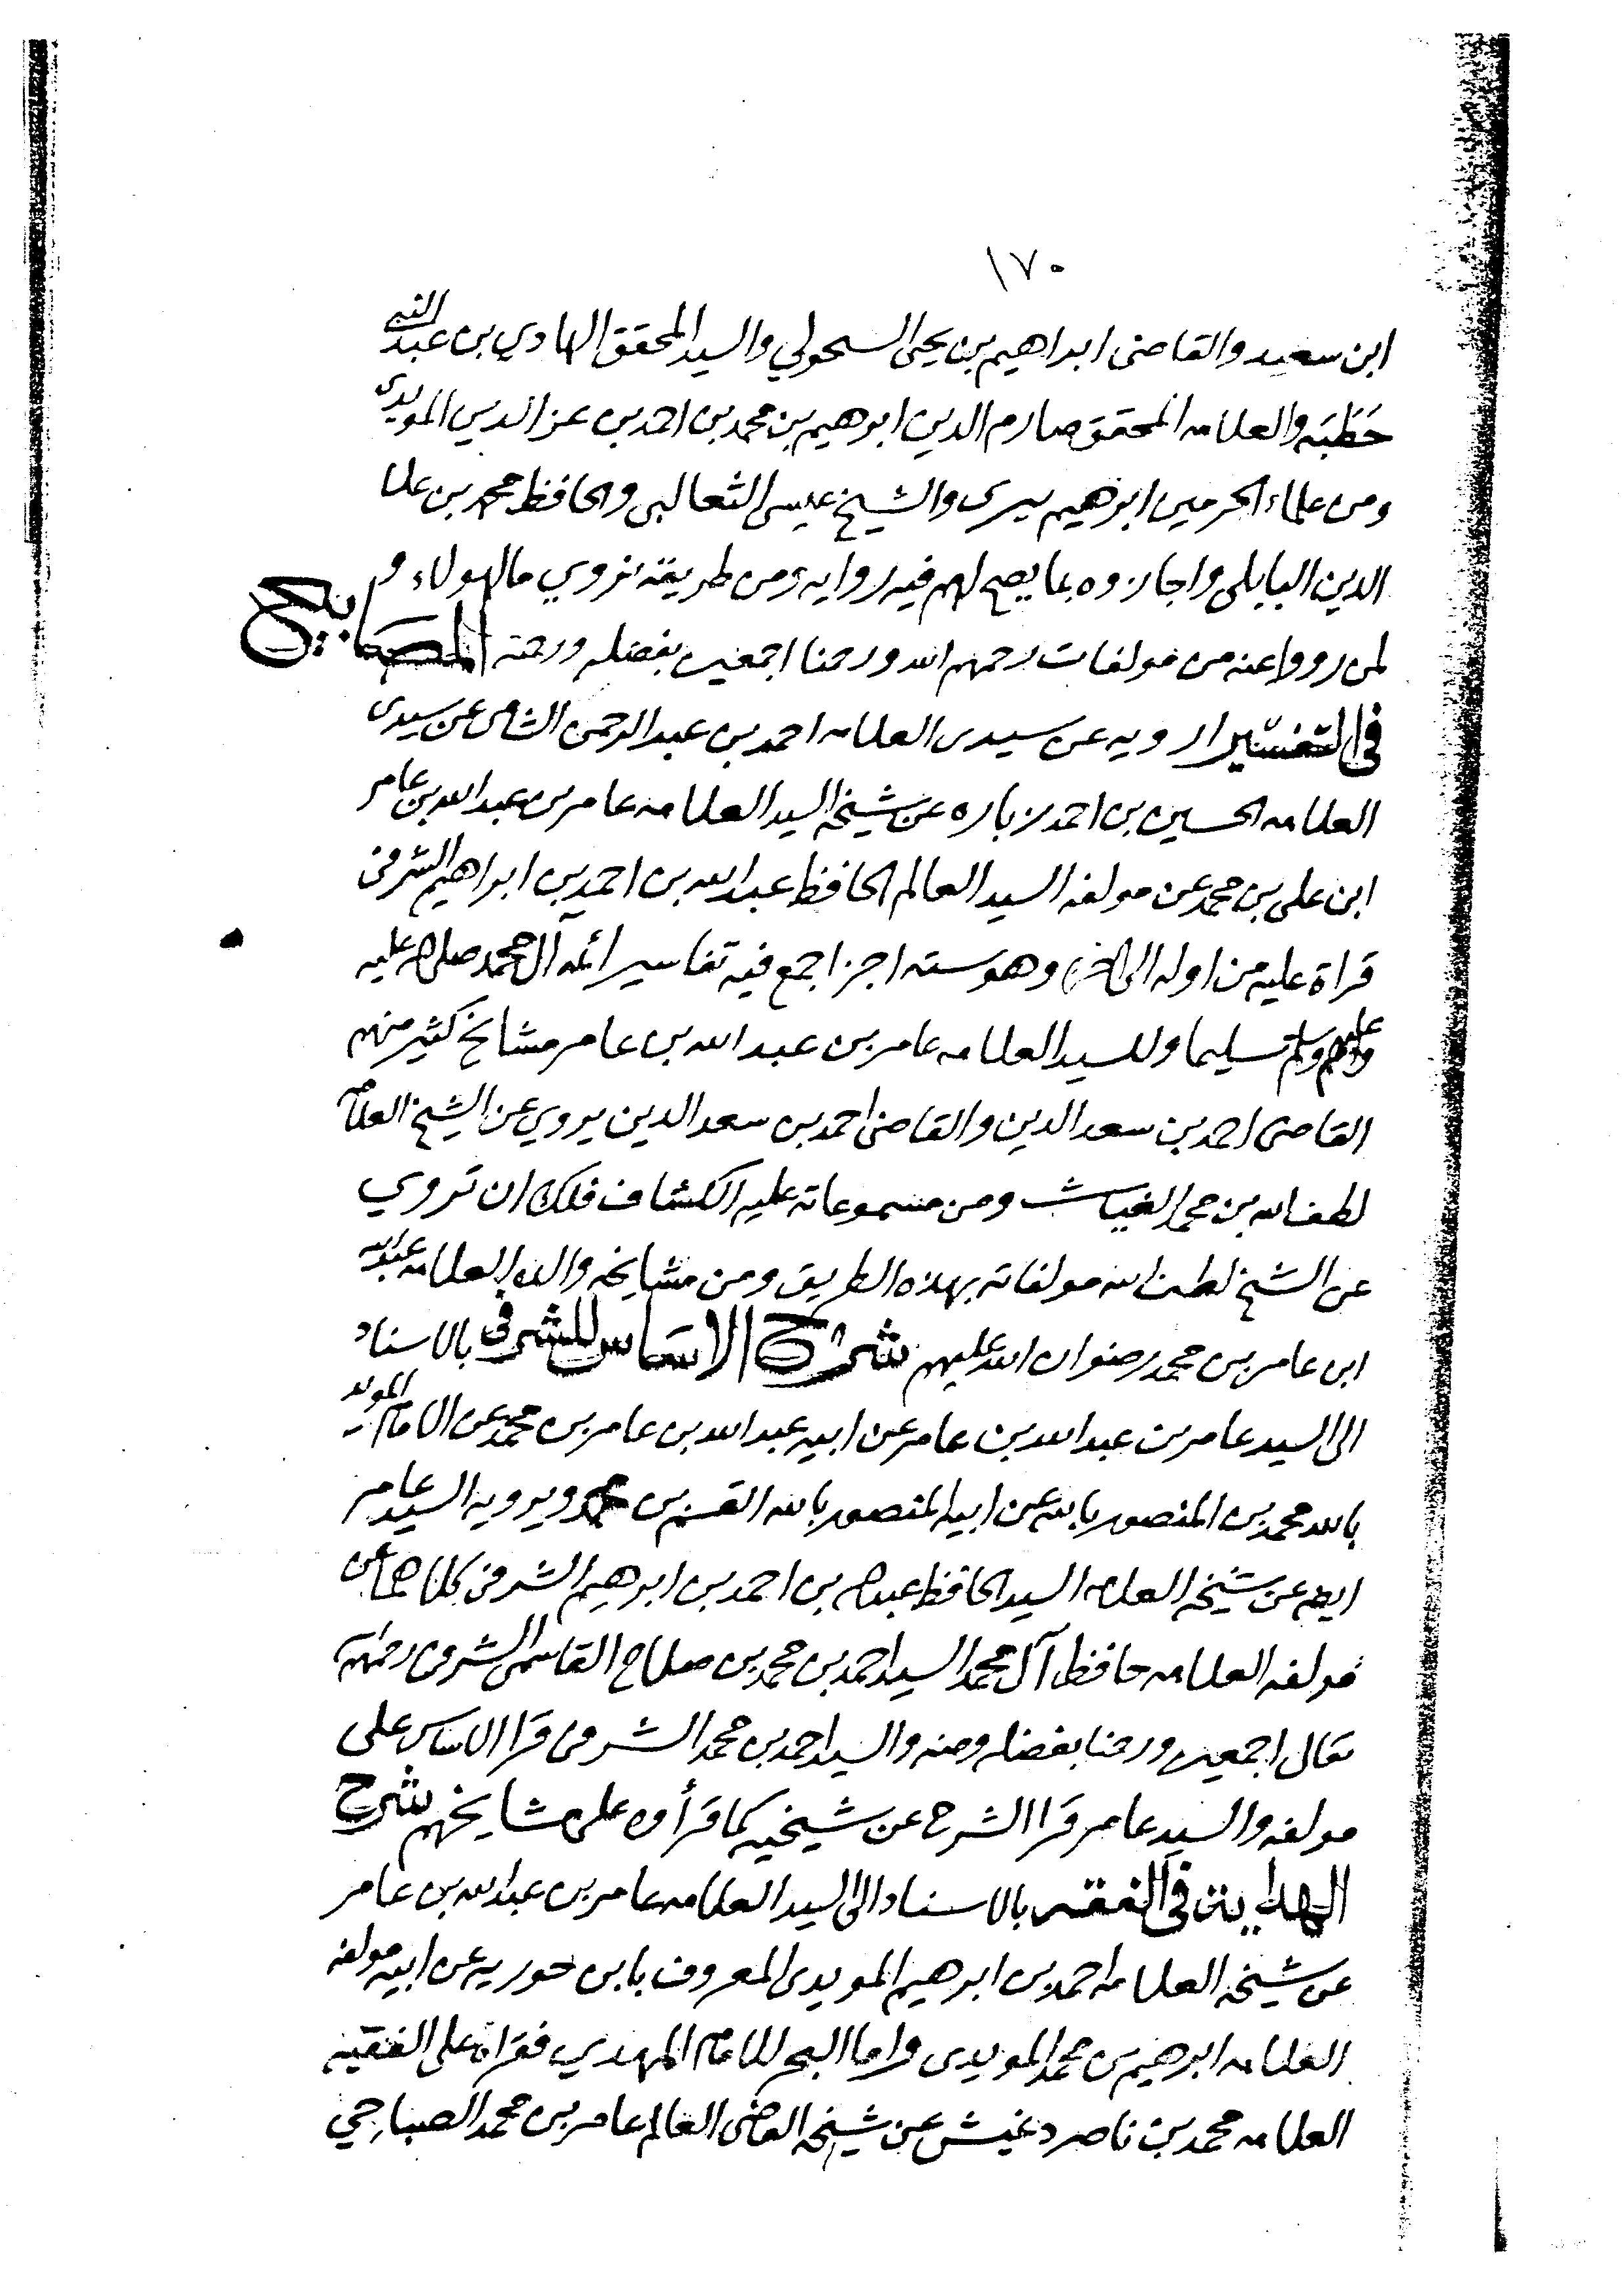 ١٧٠
ابن سعيد والقاضى ابراهيم بن يحى السحولي والسيد المحقق الهادي بن عبد النبي
حَظَبَه والعلامه المحقق صارم الدين ابرهيم بن محمد بن احمد بن عز الدين المويدى
ومن علماء الحرمين ابرهيم بيرى والشيخ عيسى الثعالبى والحافظ محمد بن علا
الدين البابلى واجازوه بما يصح لهم فيه روايه ومن طريقه نروي ما لهولاء و
لمن رووا عنه من مولفات رحمهم الله ورحمنا اجمعين بفضله ورحمته المصابيح
فى التفسير ارويه عن سيدى العلامه احمد بن عبد الرحمن الشامى عن سيدى
العلامه الحسين بن احمد زباره عن شيخه السيد العلامه عامر بن عبد الله بن عامر
ابن على بن محمد عن مولفه السيد العالم الحافظ عبد الله بن احمد بن ابراهيم الشرفى
قراة عليه من اوله الى اخره وهو سته اجزا جمع فيه تفاسير ائمه آل محمد صلى الله عليه
وعليهم وسلم تسليما وللسيد العلامه عامر بن عبد الله بن عامر مشايخ كثير منهم
القاضى احمد بن سعد الدين والقاضى احمد بن سعد الدين يروي عن الشيخ العلامه
لطف الله بن محمد الغياث ومن مسموعاته عليه الكشاف فلك ان تروي
عن الشيخ لطف الله مولفاته بهذه الطريق ومن مشايخه والده العلامه عبد الله
ابن عامر بن محمد رضوان الله عليهم شرح الاساس للشرفى بالاسناد
الى السيد عامر بن عبد الله بن عامر عن ابيه عبد الله بن عامر بن محمد عن الامام المويد
بالله محمد بن المنصور بالله عن ابيه المنصور بالله القسم بن محمد ويرويه السيد عامر
ايضا عن شيخه العلامه السيد الحافظ عبد الله بن احمد بن ابرهيم الشرفى كلاهما عن
مولفه العلامه حافظ آل محمد السيد احمد بن محمد بن صلاح القاسمى الشرفى رحمهم الله
تعالى اجمعين ورحمنا بفضله ومنه والسيد احمد بن محمد الشرفى قرا الاساس على
مولفه والسيد عامر قرا الشرح عن شيخيه كما قرأوه على مشايخهم شرح
الهدايه فى الفقه بالاسناد الى السيد العلامه عامر بن عبد الله بن عامر
عن شيخه العلامه احمد بن ابرهيم المويدى المعروف بابن حوريه عن ابيه مولفه
العلامه ابرهيم بن محمد المويدى واما البحر للامام المهدي فقراه على الفقيه
العلامه محمد بن ناصر دغيش عن شيخه القاضى العالم عامر بن محمد الصباحِي